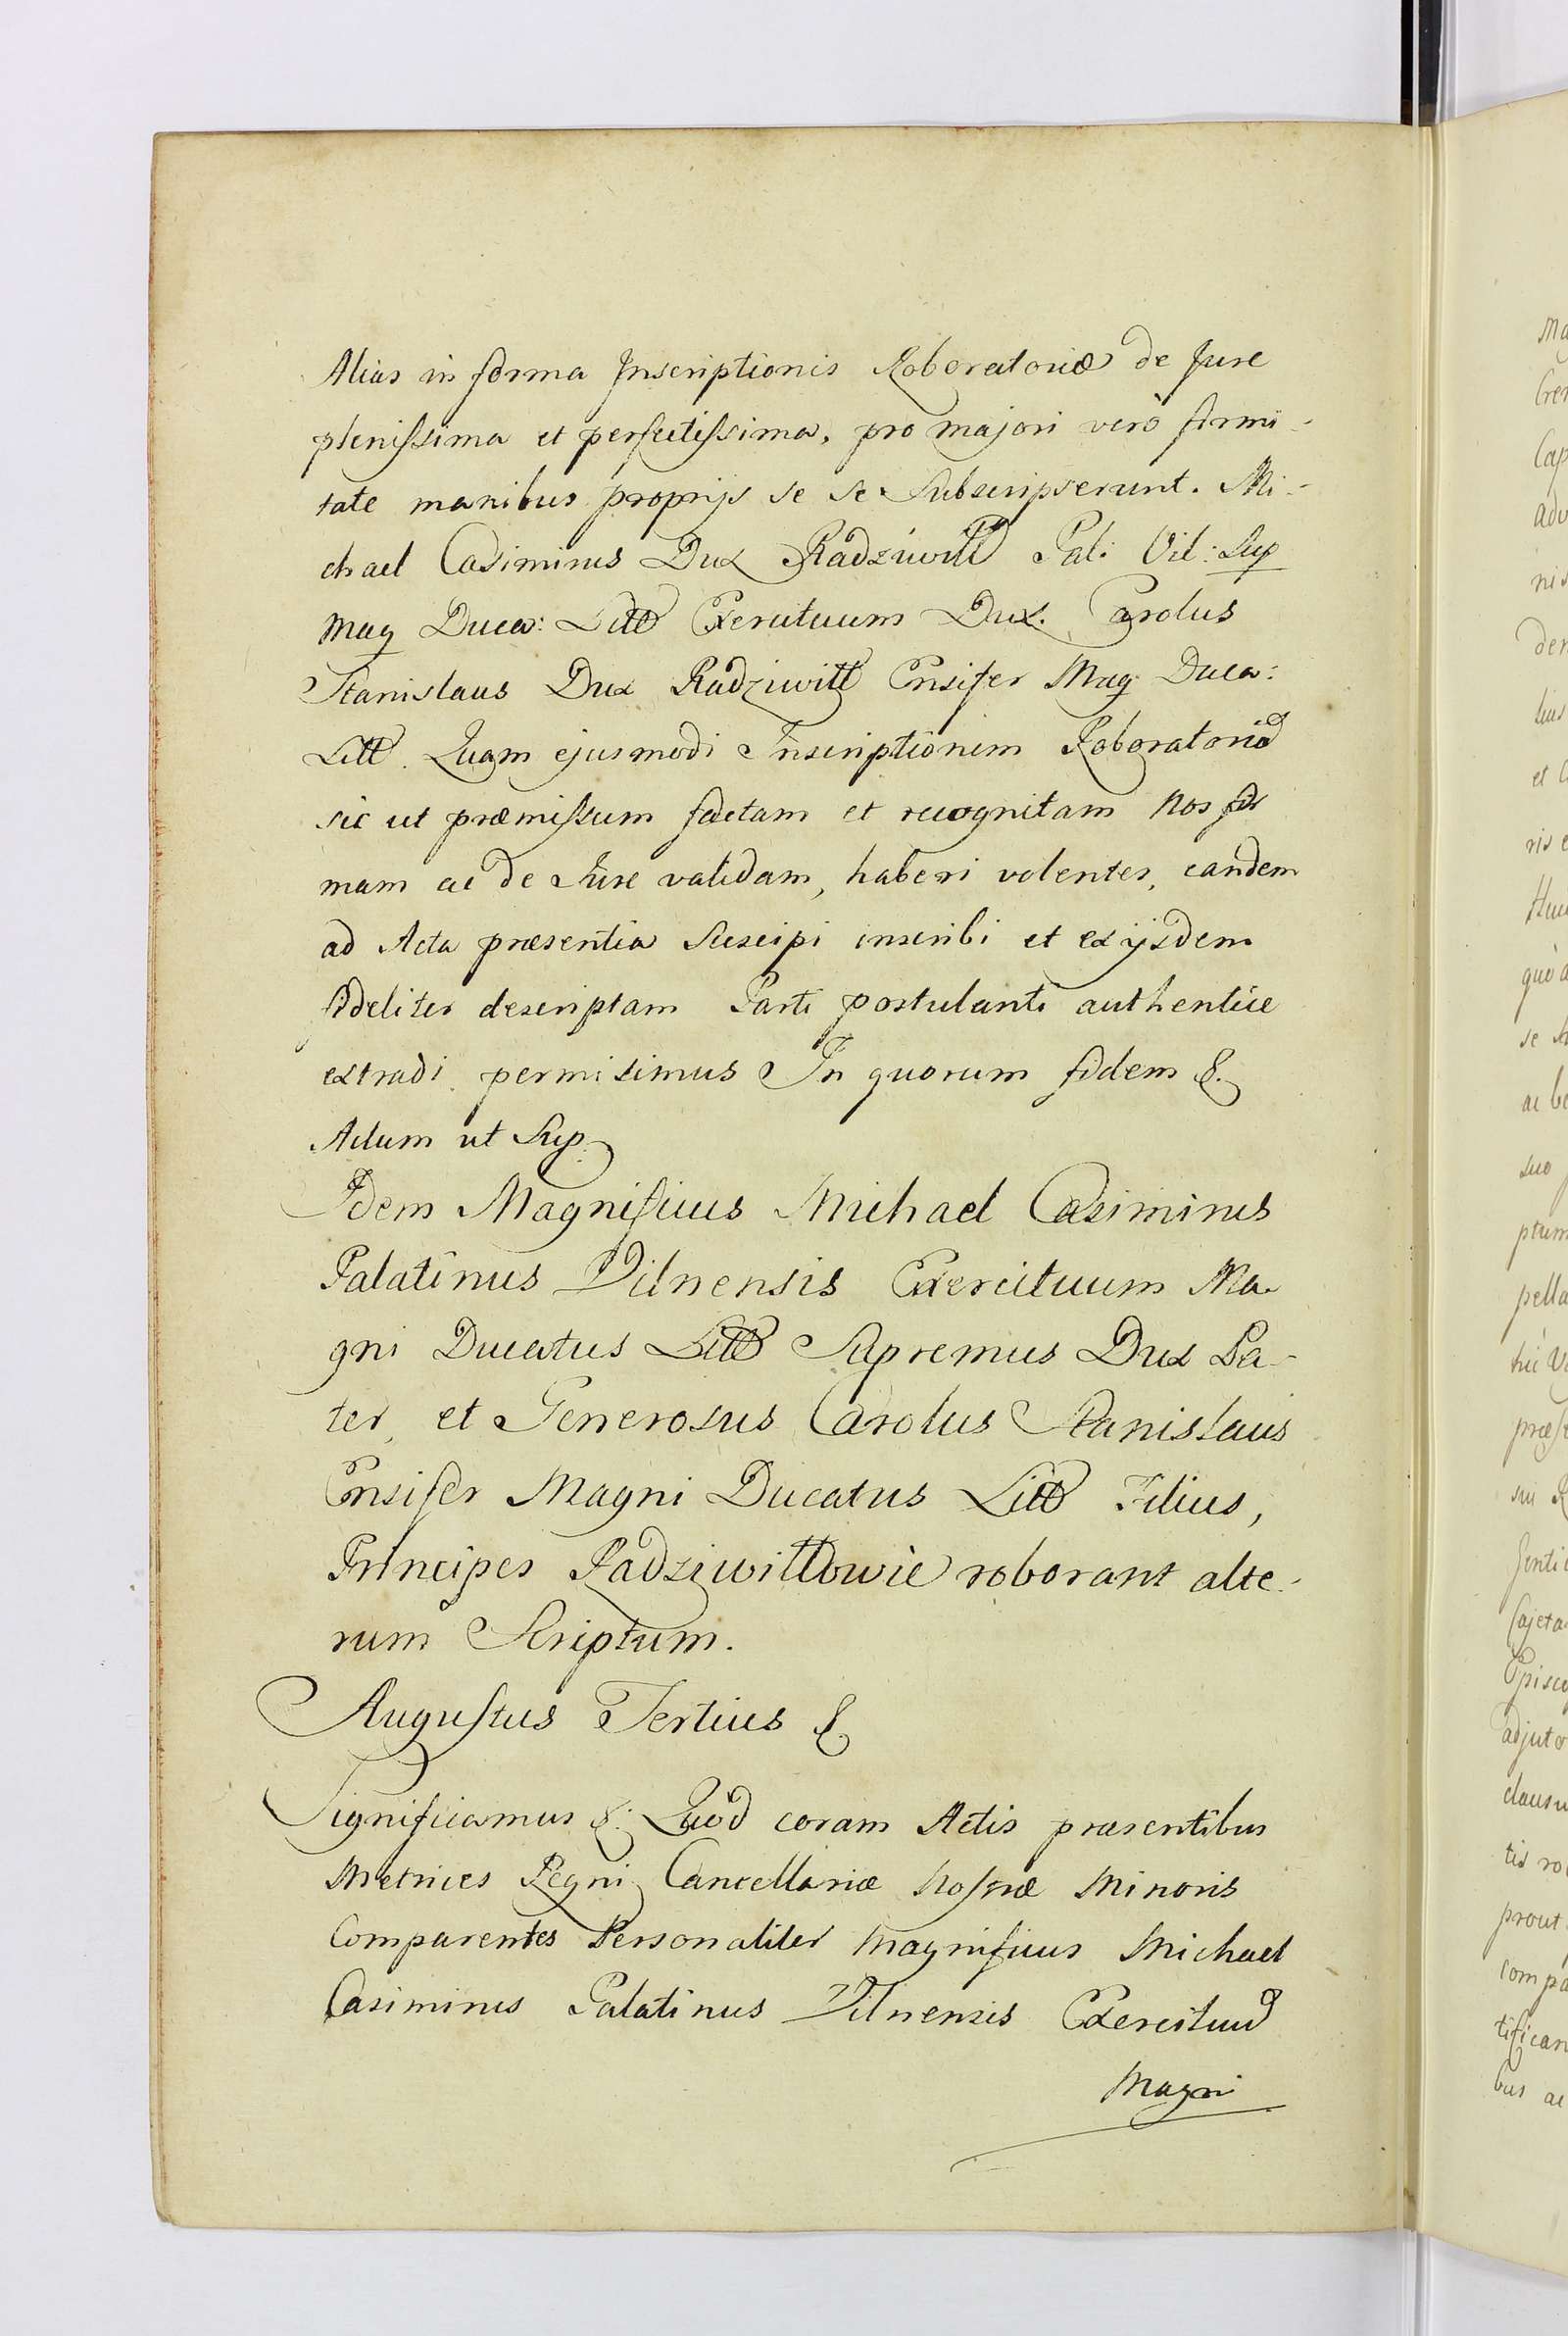 Alias in forma Inscriptionis Roboratoriæ de Jure
plenissima et perfectissima, pro majori verò firmi-
tate manibus proprijs se se Subscripserunt. Mi-
chael Casimirus Dux Radziwiłł Pal: Vil: Sup
Mag Duca: Litt Exercituum Dux. Carolus
Stanislaus Dux Radziwiłł Ensifer Mag: Duca:
Litt. Quam ejusmodi Inscriptionem Roboratoria
sic ut præmissum factam et recognitam Nos fir
mam ac de Jure validam, haberi volentes, eandem
ad Acta præsentia Suscipi inscribi et ex ijsdem
fideliter descriptam Parti postulanti authentice
extradi permisimus In quorum fidem &.
Actum ut Sup.
Idem Magnificus Michael Casimirus
Palatinus Vilnensis Exercituum Ma
gni Ducatus Litt Supremus Dux Pa-
ter, et Generosus Carolus Stanislaus
Ensifer Magni Ducatus Litt Filius,
Principes Radziwiłłowie roborant alte-
rum Scriptum.
Augustus Tertius &.
Significamus &: Quòd coram Actis præsentibus
Metrices Regni Cancellariæ Nostræ Minoris
Comparentes Personaliter Magnificus Michael
Casimirus Palatinus Vilnensis Exercituu
Magni